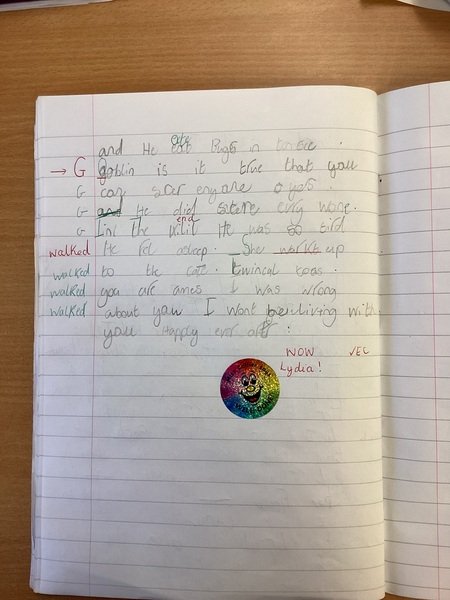 ate
and He eat Bugs in
→ G goblin is it true that you
G can scer enyare o yes.
G and He did scere evry wone.
end
G Linl the He was so tird
walked He fel asleep. She up
walked to the cate. twincal toas.
walked you are I was wrong
walked about you I wont be Living with
you Happly ever aft
WOW VEC
Lydia!